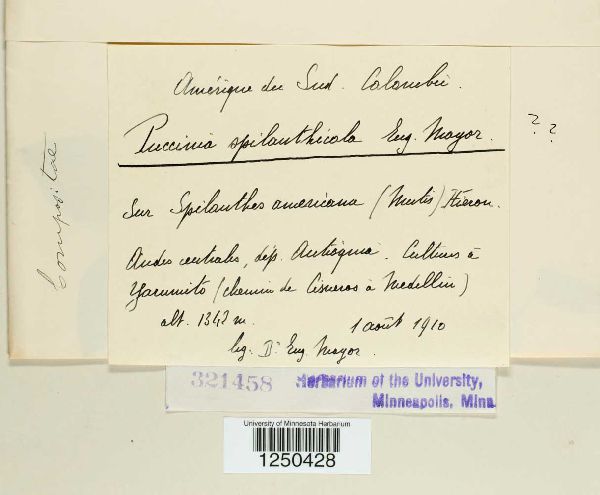 Amérique du Sud. Colombie.
Puccinia spilanthicola Eug. Mayor.
? ?
Compositae
Sur Spilanthes americana (Mutis) Hieron.
Andes centrales, dép. Antioquia. Cultures à
Yarumito (chemin de Cisneros à Medellin)
alt. 1342 m.
1 août 1910
leg. Dr Eug. Mayor.
321458 Herbarium of the University,
Minneapolis, Minn.
University of Minnesota Herbarium
1250428